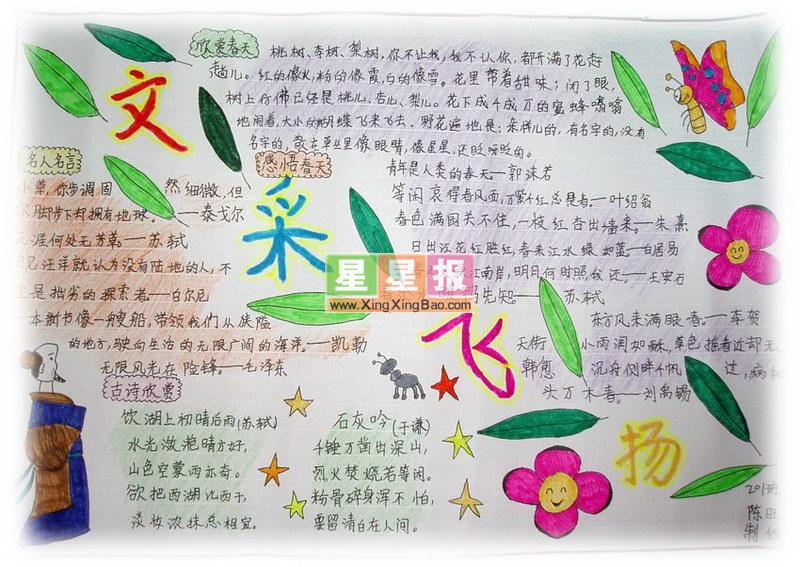 文
采
飞
扬
欣赏春天
桃树、李树、梨树,你不让我,我不让你,都开满了花赶
趟儿。红的像火,粉的像霞,白的像雪。花里带着甜味;闭了眼,
树上仿佛已经是桃儿、杏儿、梨儿。花下成千成万的蜜蜂嗡嗡
地闹着,大小的蝴蝶飞来飞去。野花遍地是:杂样儿的,有名字的,没有
名字的,散在草丛里像眼睛,像星星,还眨呀眨的。
名人名言
小草,你步调固然细微,但
脚步下却拥有地球。——泰戈尔
天涯何处无芳草。——苏轼
见汪洋就认为没有陆地的人,不
是拙劣的探索者。——白尔尼
本新书像一艘船,带领我们从狭隘
的地方,驶向生活的无限广阔的海洋。——凯勒
无限风光在险锋。——毛泽东
感悟春天
青年是人类的春天。——郭沫若
等闲 得春风面,万紫千红总是春。——叶绍翁
春色满园关不住,一枝红杏出墙来。——朱熹
日出江花红胜红,春来江水绿如蓝。——白居易
江南岸,明月何时照我还。——王安石
先知——苏轼
东方风来满眼春。——李贺
天街小雨润如酥,草色 看近却无
韩愈
沉舟侧畔千帆过,病树
头万木春。——刘禹锡
古诗欣赏
饮湖上初晴后雨(苏轼)
水光潋滟晴方好,
山色空蒙雨亦奇。
欲把西湖比西子,
淡妆浓抹总相宜。
石灰吟(于谦)
千锤万凿出深山,
烈火焚烧若等闲。
粉骨碎身浑不怕,
要留清白在人间。
星星报
www.XingXingBao.com
201班
陈旺
制作